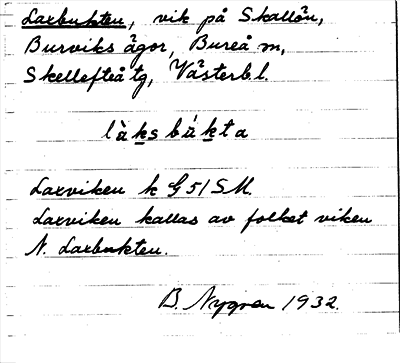 Laxbukten, vik på Skallön,
Burviks ägor, Bureå m,
Skellefteå tg, Västerb l.
làksbúkta
Laxviken k G 51 SM.
Laxviken kallas av folket viken
N. Laxbukten.
B. Nygren 1932.